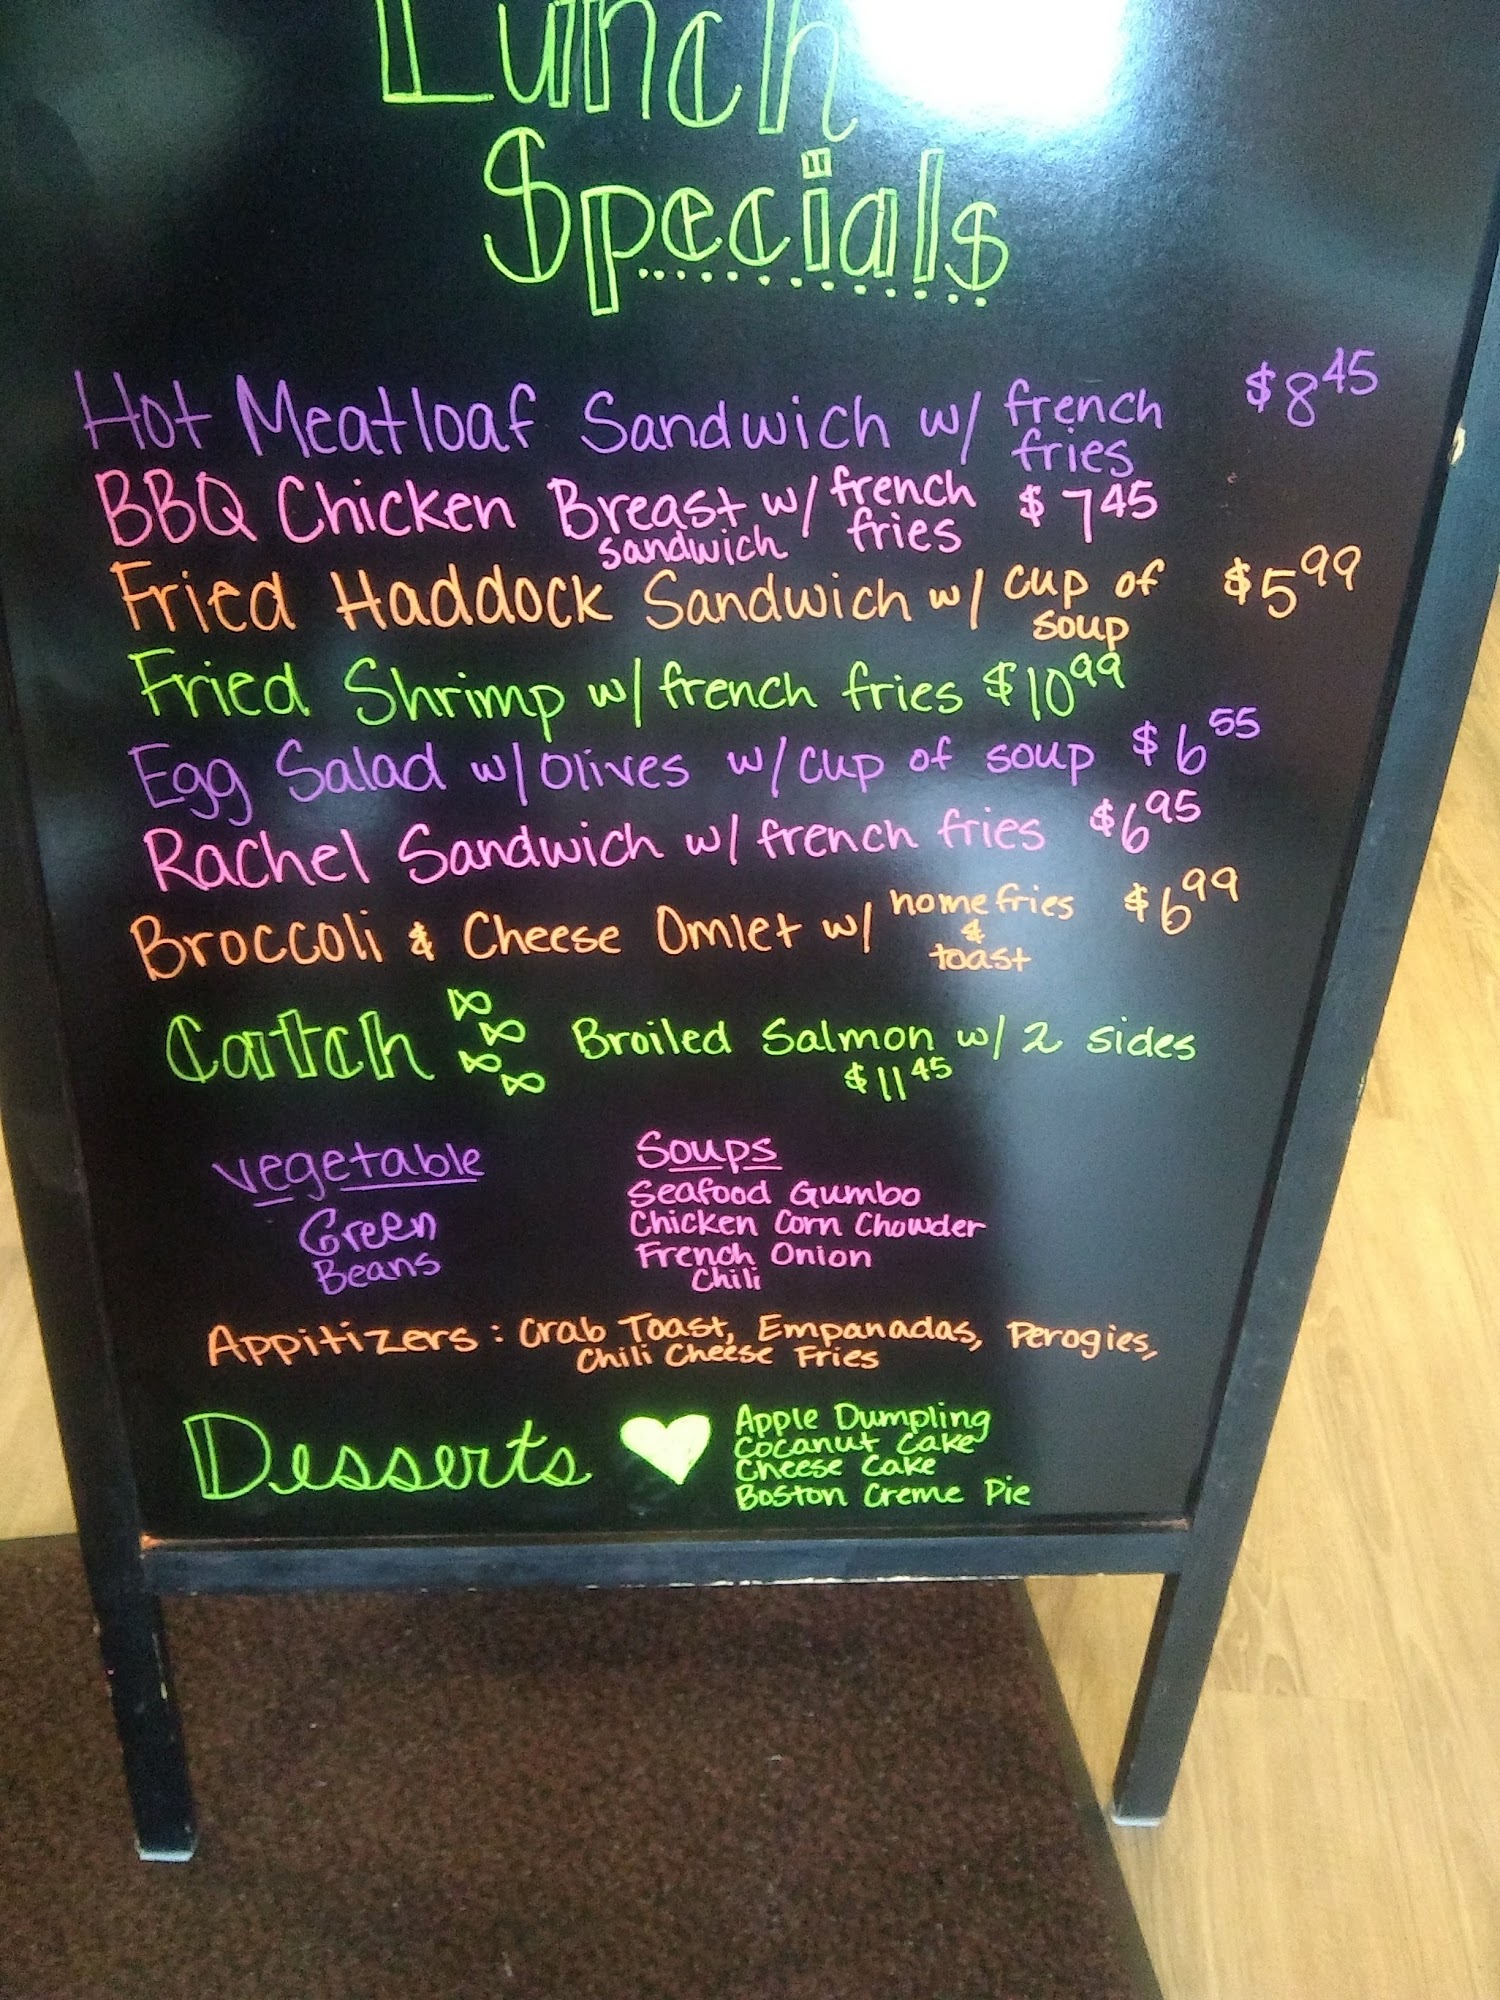 Lunch
Specials
Hot Meatloaf Sandwich w/ french fries $8.45
BBQ Chicken Breast sandwich w/ french fries $7.45
Fried Haddock Sandwich w/ cup of soup $5.99
Fried Shrimp w/ french fries $10.99
Egg Salad w/ olives w/ cup of soup $6.55
Rachel Sandwich w/ french fries $6.95
Broccoli & Cheese Omlet w/ homefries & toast $6.99
Catch Broiled Salmon w/ 2 sides
$11.45
Vegetable
Green
Beans
Soups
Seafood Gumbo
Chicken Corn Chowder
French Onion
Chili
Appitizers: Crab Toast, Empanadas, Perogies,
Chili Cheese Fries
Desserts
Apple Dumpling
Cocanut Cake
Cheese Cake
Boston Creme Pie